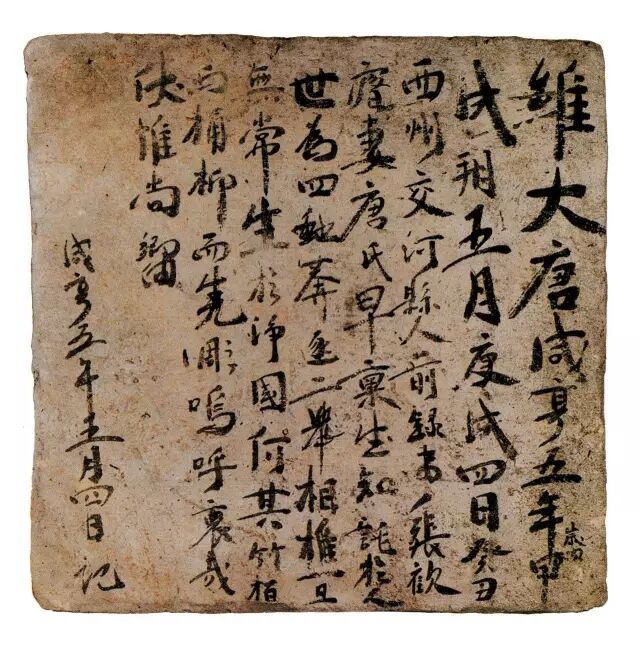 維大唐咸亨五年歲甲
戌朔五月庚戌四日癸丑
西州交河縣人前録事張歡
妻唐氏早禀生知託於人
世為四逐二相推一旦
無常生於淨國何其竹柏
柳而先彫嗚呼哀哉
伏惟尚饗
咸亨五年五月四日記